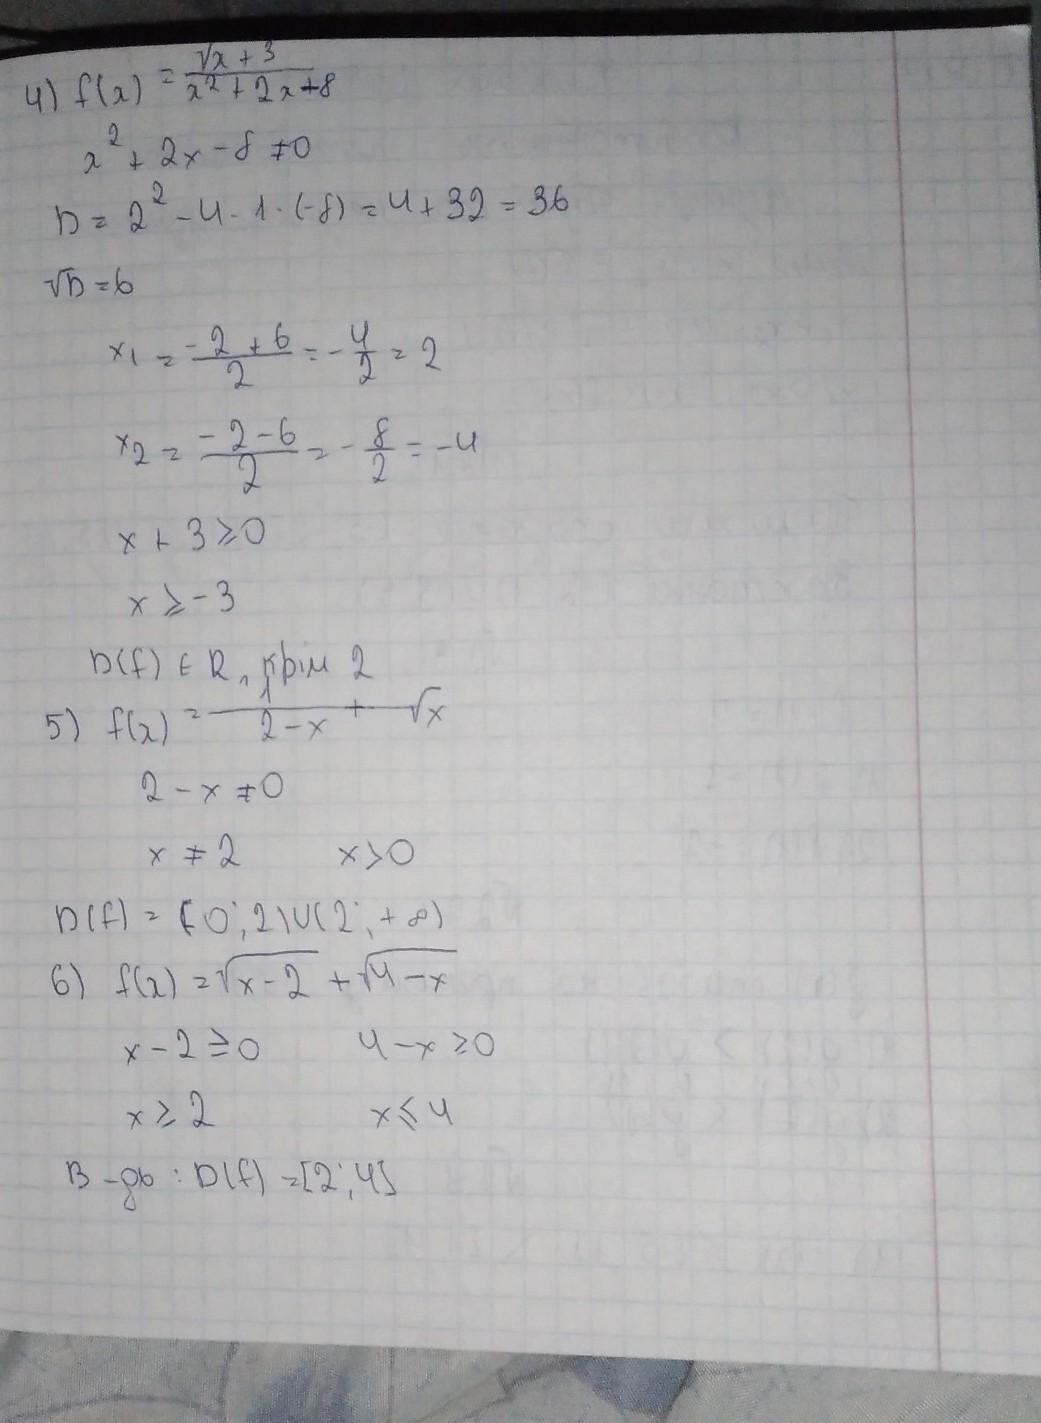 4) f(x) = √x + 3 / x² + 2x + 8
x² + 2x - 8 ≠ 0
D = 2² - 4 · 1 · (-8) = 4 + 32 = 36
√D = 6
x1 = -2 + 6 / 2 = - 4 / 2 = 2
x2 = -2 - 6 / 2 = - 8 / 2 = -4
x + 3 ≥ 0
x ≥ -3
D(f) ∈ R, крім 2
5) f(x) = 1 / 2 - x + √x
2 - x ≠ 0
x ≠ 2 x > 0
D(f) = (0; 2) ∪ (2; + ∞)
6) f(x) = √x - 2 + √4 - x
x - 2 ≥ 0 4 - x ≥ 0
x ≥ 2 x ≤ 4
В-дь : D(f) = [2; 4]